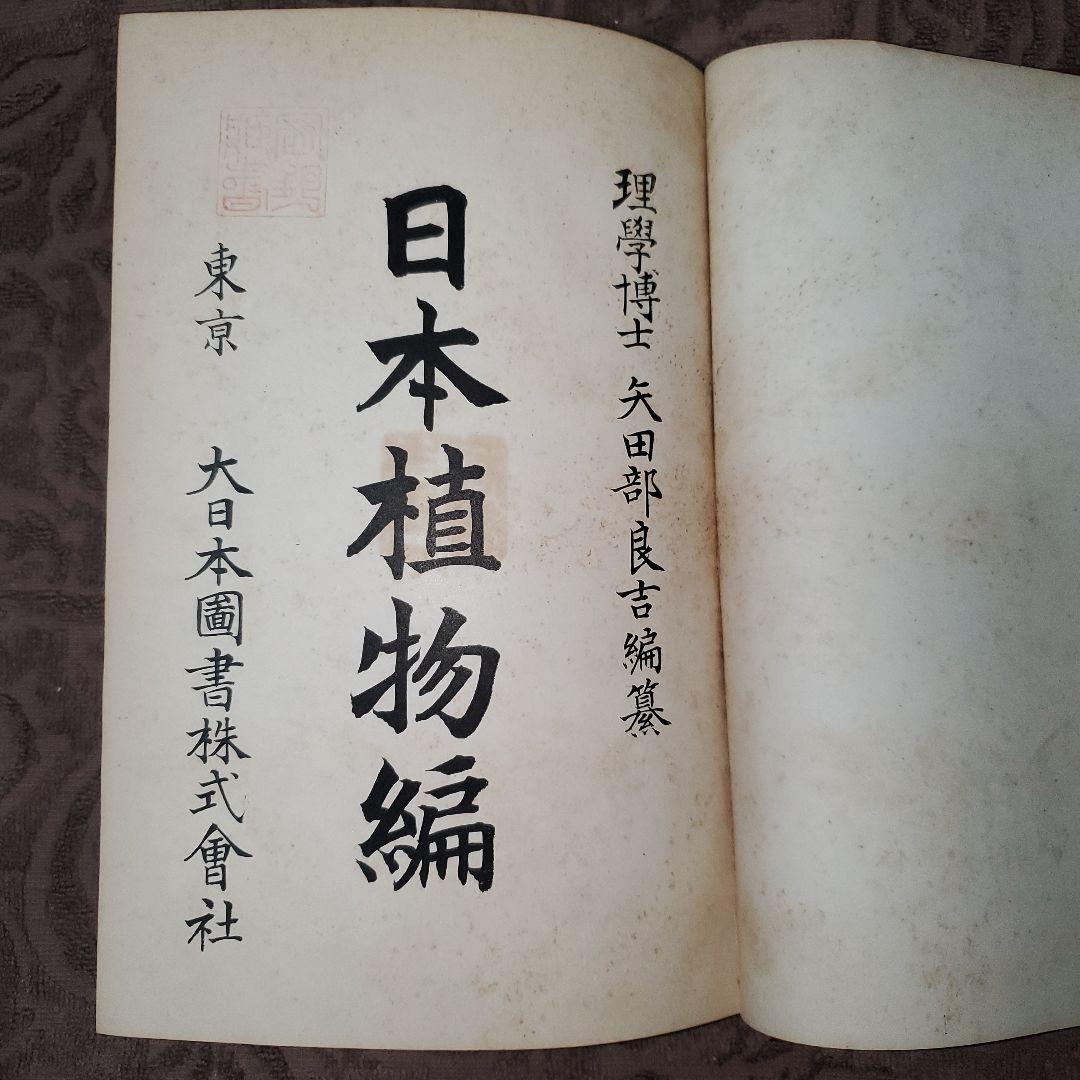 理學博士 矢田部良吉編纂
日本植物編
東亰 大日本圖書株式會社